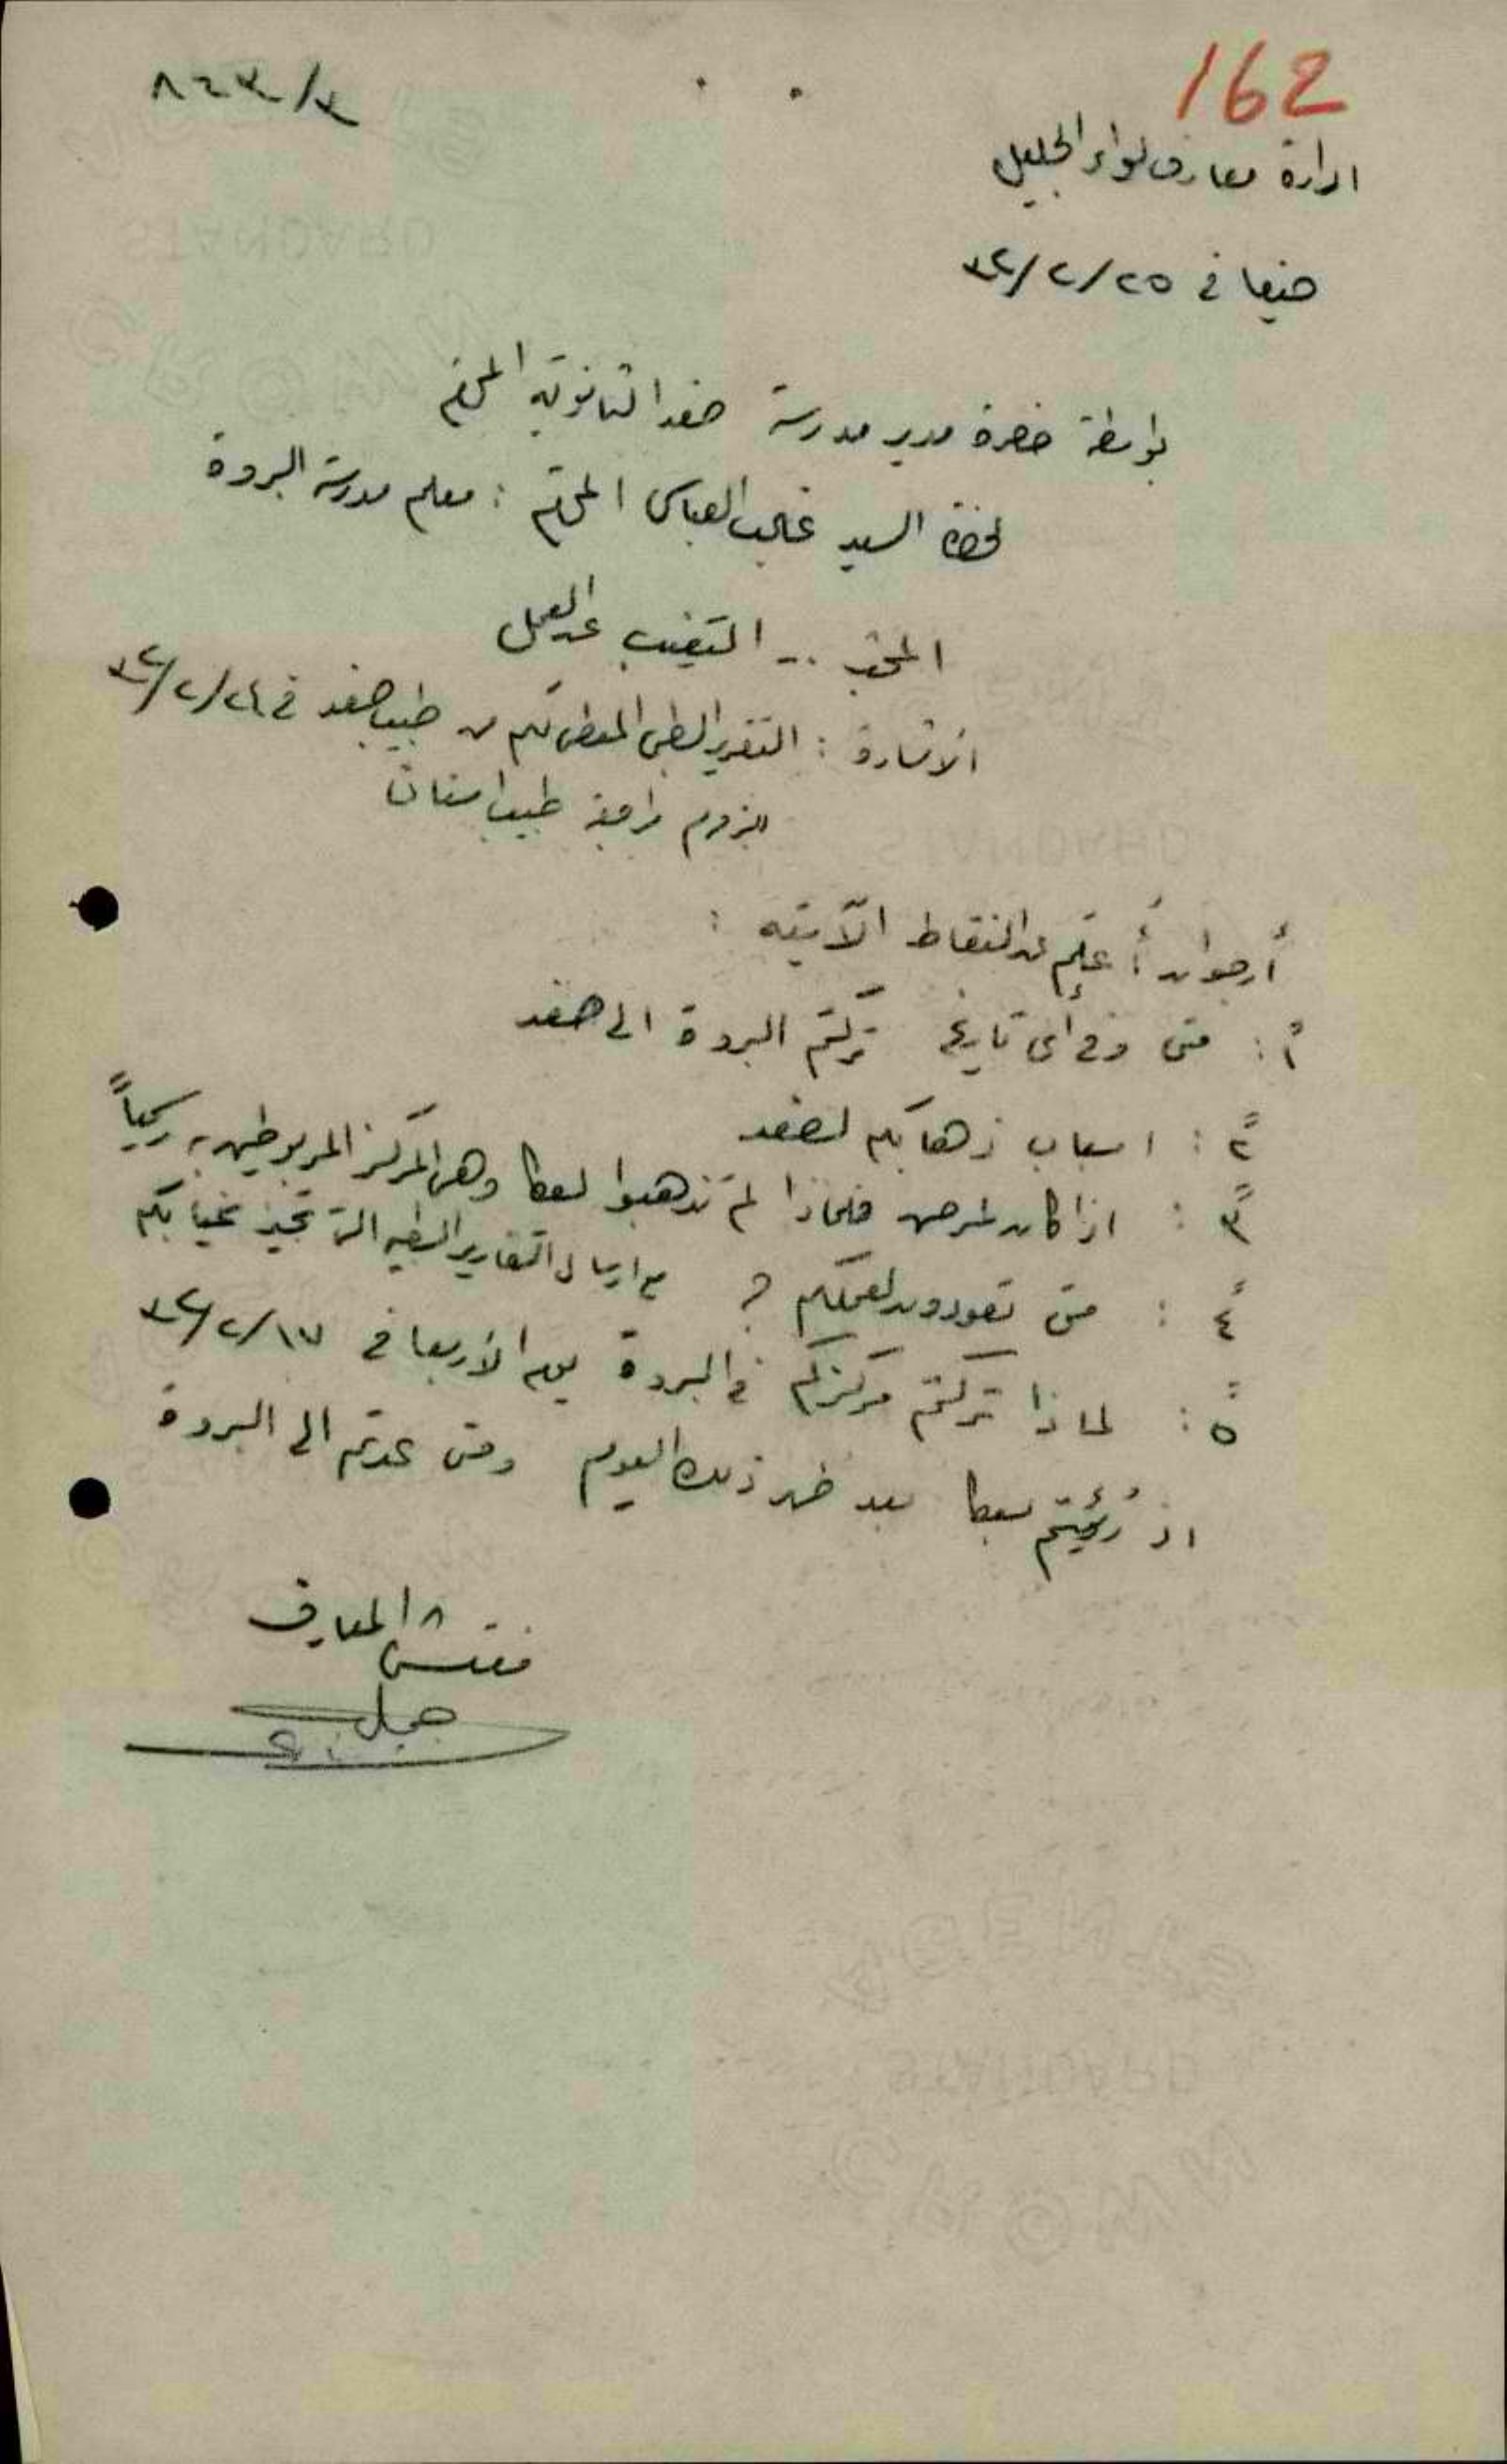 162
٨٤٣/٣
ادارة معارف لواء الجليل
حيفا في ٢٥/٢/٤٣
بواسطة حضرة مدير مدرسة صفد الثانوية المحترم
لحضرة السيد غالب العباس المحترم : معلم مدرسة البروة
المختص .. التغيب عن العمل
الاشارة : التقرير الطبي المعطى لكم من طبيب صفد في ٢٤/٢/٤٣
بلزوم مراجعة طبيب اسنان
أرجو ان أُعلم عن النقاط الآتية :
١ : متى وفي أي تاريخ تركتم البروة الى صفد
٢ : اسباب ذهابكم لصفد
٣ : اذا كان لمرض فلماذا لم تذهبوا لعكا وهي المركز المربوطين به رسمياً
٤ : متى تعودون لعملكم ؟ مع ارسال التقارير الطبية التي تجيز غيابكم
٥ : لماذا تركتم مركزكم في البروة يوم الأربعا في ١٧/٢/٤٣
اذ رُئيتم بعكا بعد ظهر ذلك اليوم ومتى عدتم الى البروة
مفتش المعارف